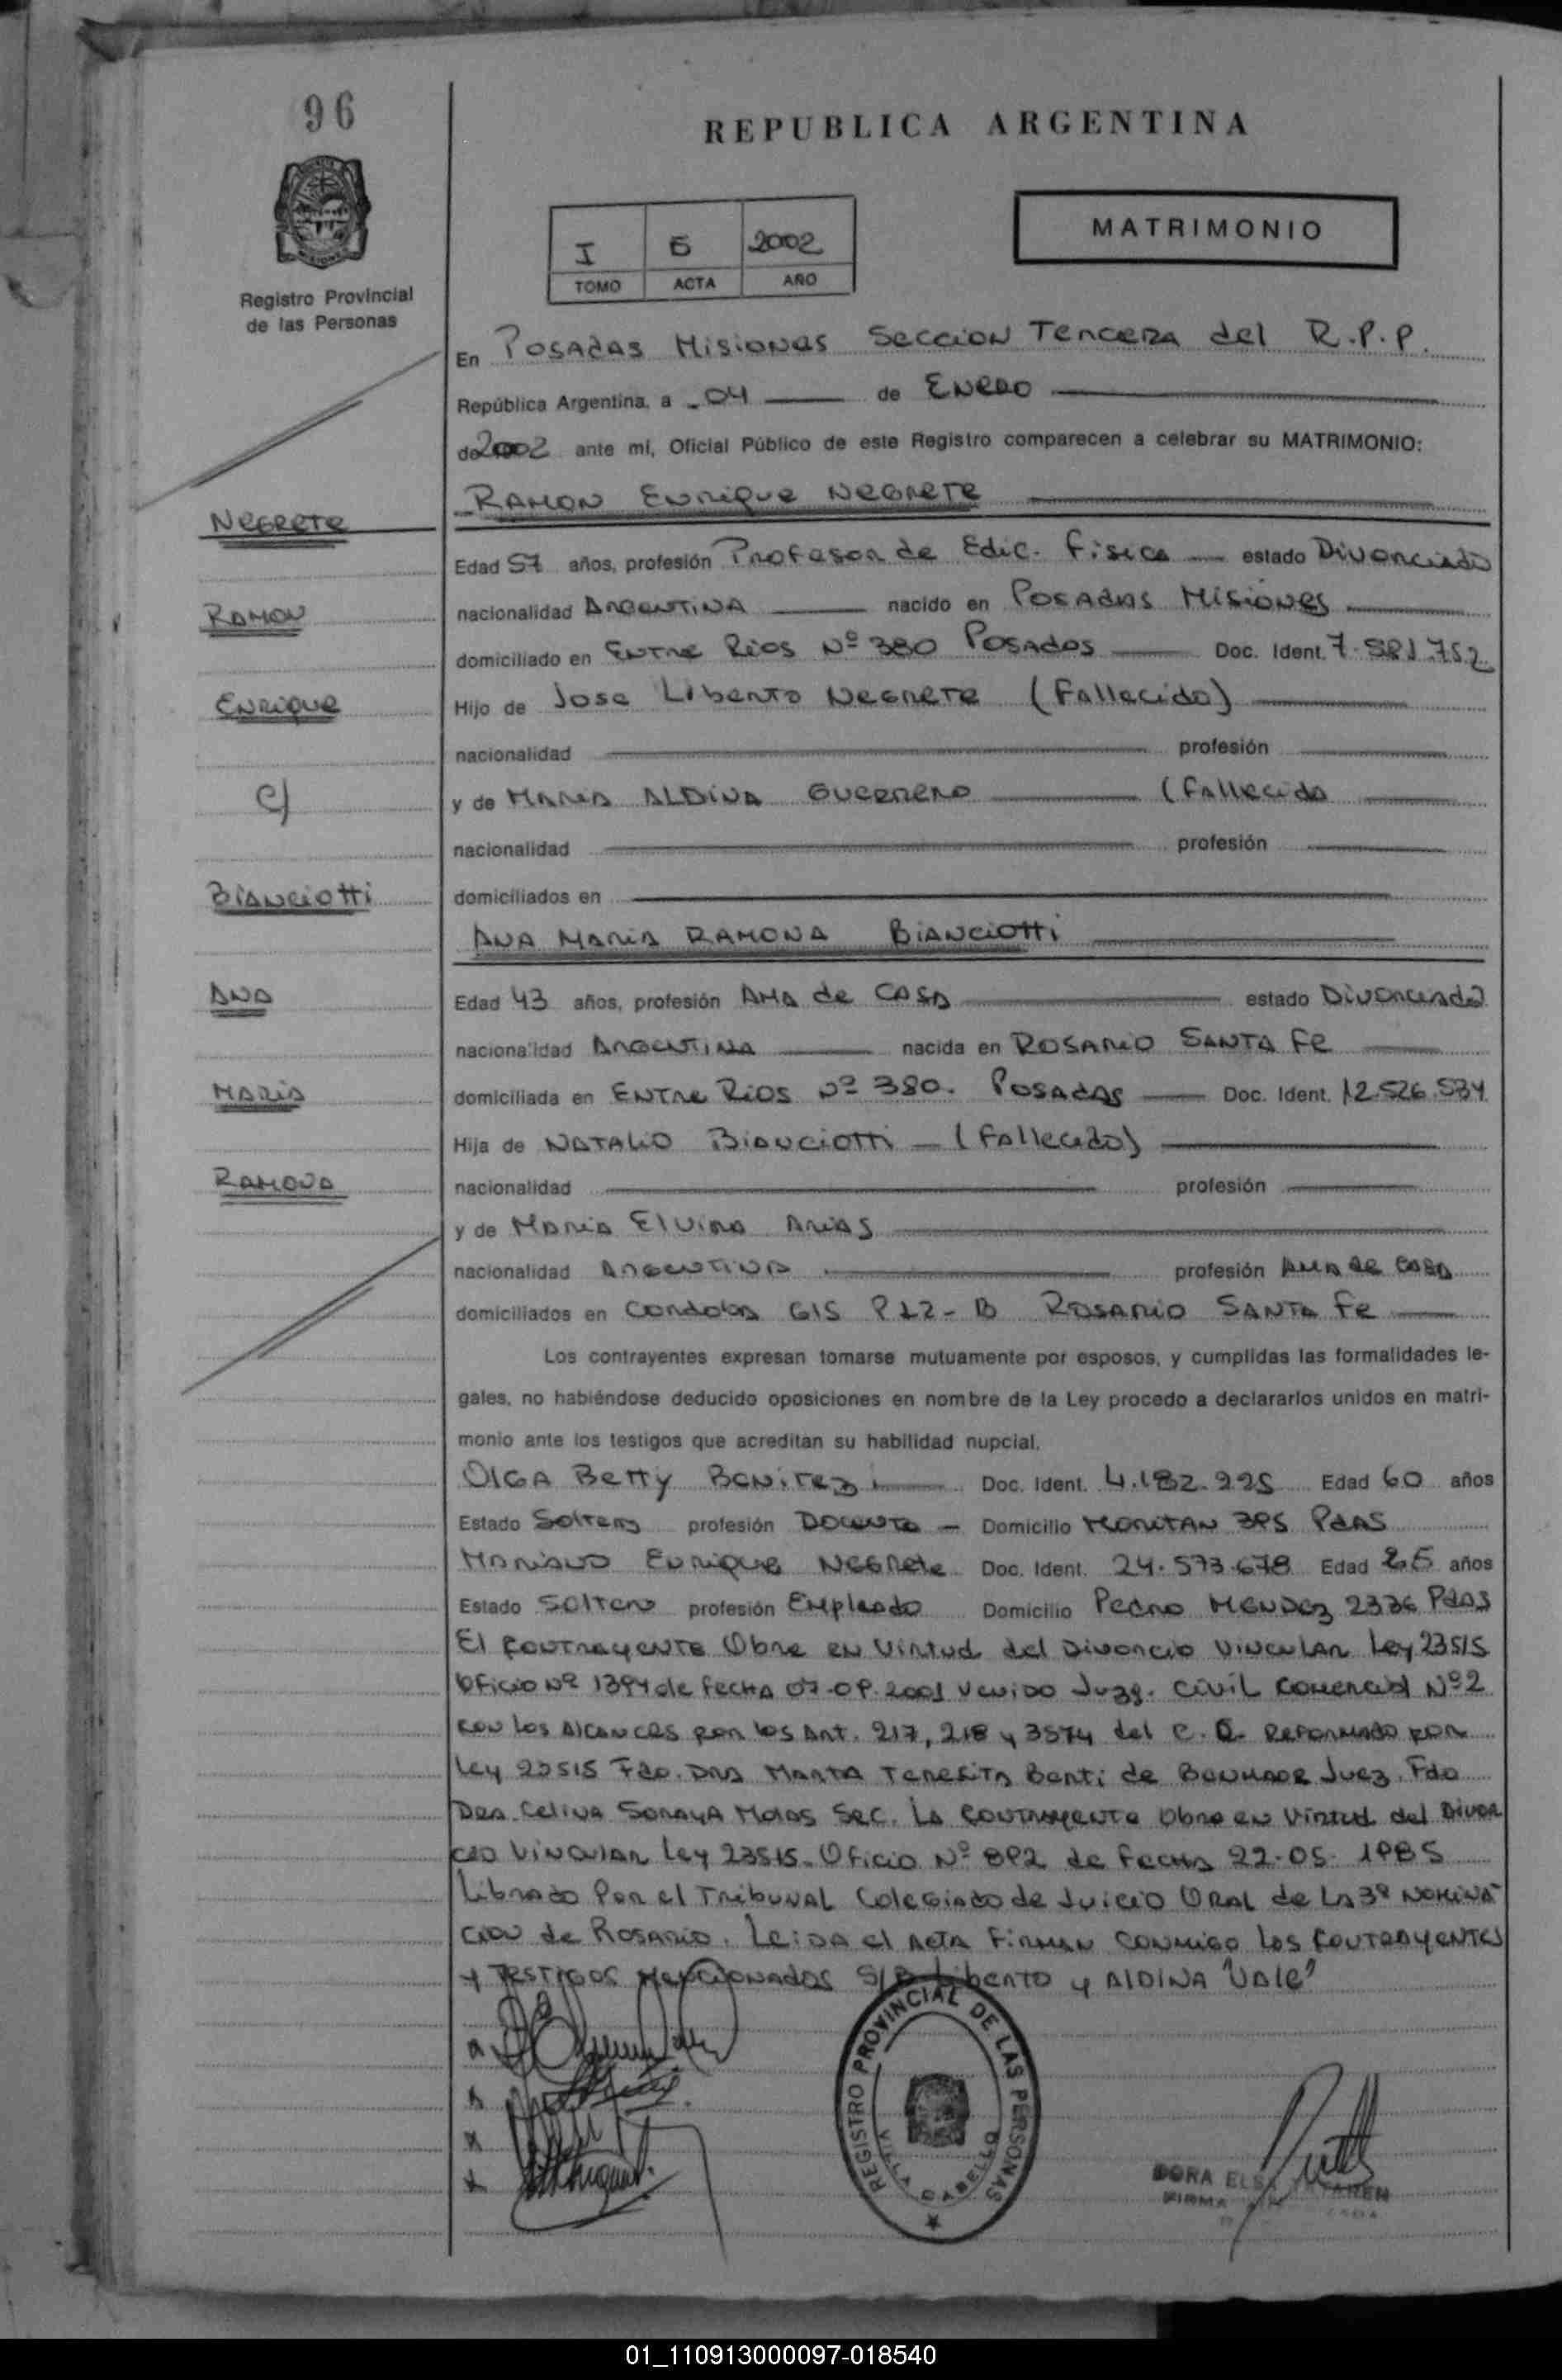 96
REPUBLICA ARGENTINA
I 6 2002
TOMO ACTA AÑO
MATRIMONIO
Registro Provincial
de las Personas
En POSADAS MISIONES SECCION TERCERA del R.P.P.
República Argentina, a 04 de ENERO
de 2002 ante mi, Oficial Público de este Registro comparecen a celebrar su MATRIMONIO:
RAMON ENRIQUE NEGRETE
NEGRETE
Edad 57 años, profesión Profesor de Edic. Fisica estado Divorciado
nacionalidad ARGENTINA nacido en POSADAS MISIONES
RAMON
domiciliado en ENTRE RIOS Nº 380 POSADAS Doc. Ident. 7.581.752
Hijo de Jose Liberto NEGRETE (Fallecido)
ENRIQUE
nacionalidad profesión
y de MARIA ALDINA GUERRERO (Fallecida
c/
nacionalidad profesión
domiciliados en
BIANCIOTTI
ANA MARIA RAMONA BIANCIOTTI
Edad 43 años, profesión AMA de CASA estado Divorciada
ANA
nacionalidad ARGENTINA nacida en ROSARIO SANTA FE
domiciliada en ENTRE RIOS Nº 380. POSADAS Doc. Ident. 12.526.534
MARIA
Hija de NATALIO BIANCIOTTI (Fallecido)
nacionalidad profesión
RAMONA
y de MARIA Elvira ARIAS
nacionalidad ARGENTINA profesión AMA de CASA
domiciliados en Cordoba 615 P12-B ROSARIO SANTA FE
Los contrayentes expresan tomarse mutuamente por esposos, y cumplidas las formalidades le-
gales, no habiéndose deducido oposiciones en nombre de la Ley procedo a declararlos unidos en matri-
monio ante los testigos que acreditan su habilidad nupcial.
OLGA BETTY BENITEZ Doc. Ident. 4.182.225 Edad 60 años
Estado Soltera profesión DOCENTE Domicilio PdAS
MARIANO ENRIQUE NEGRETE Doc. Ident. 24.573.678 Edad 26 años
Estado Soltero profesión Empleado Domicilio Pedro MENDEZ 2336 PdAS
El CONTRAYENTE Obra en Virtud del Divorcio VINCULAR Ley 23515
Oficio Nº 1394 de FECHA 07-09-2001 VENIDO Juzg. Civil Comercial Nº2
CON los ALCANCES por los Art. 217, 218 y 3574 del C.C. REFORMADO POR
Ley 23515 Fdo. DRA MARTA TERESITA de Juez. Fdo
DRA. CELINA SORAYA Sec. LA CONTRAYENTE Obra en Virtud del DIVOR
CIO VINCULAR Ley 23515. Oficio Nº 892 de Fecha 22-05-1985
Librado Por el TRIBUNAL Colegiado de Juicio ORAL de LA 3º NOMINA-
CION de ROSARIO. LEIDA el ACTA FIRMAN CONMIGO los CONTRAYENTES
y TESTIGOS MENCIONADOS S/R Liberto y ALDINA "VALE"
REGISTRO PROVINCIAL DE LAS PERSONAS
VILLA CABELLO
DORA ELSA
FIRMA
01_110913000097-018540